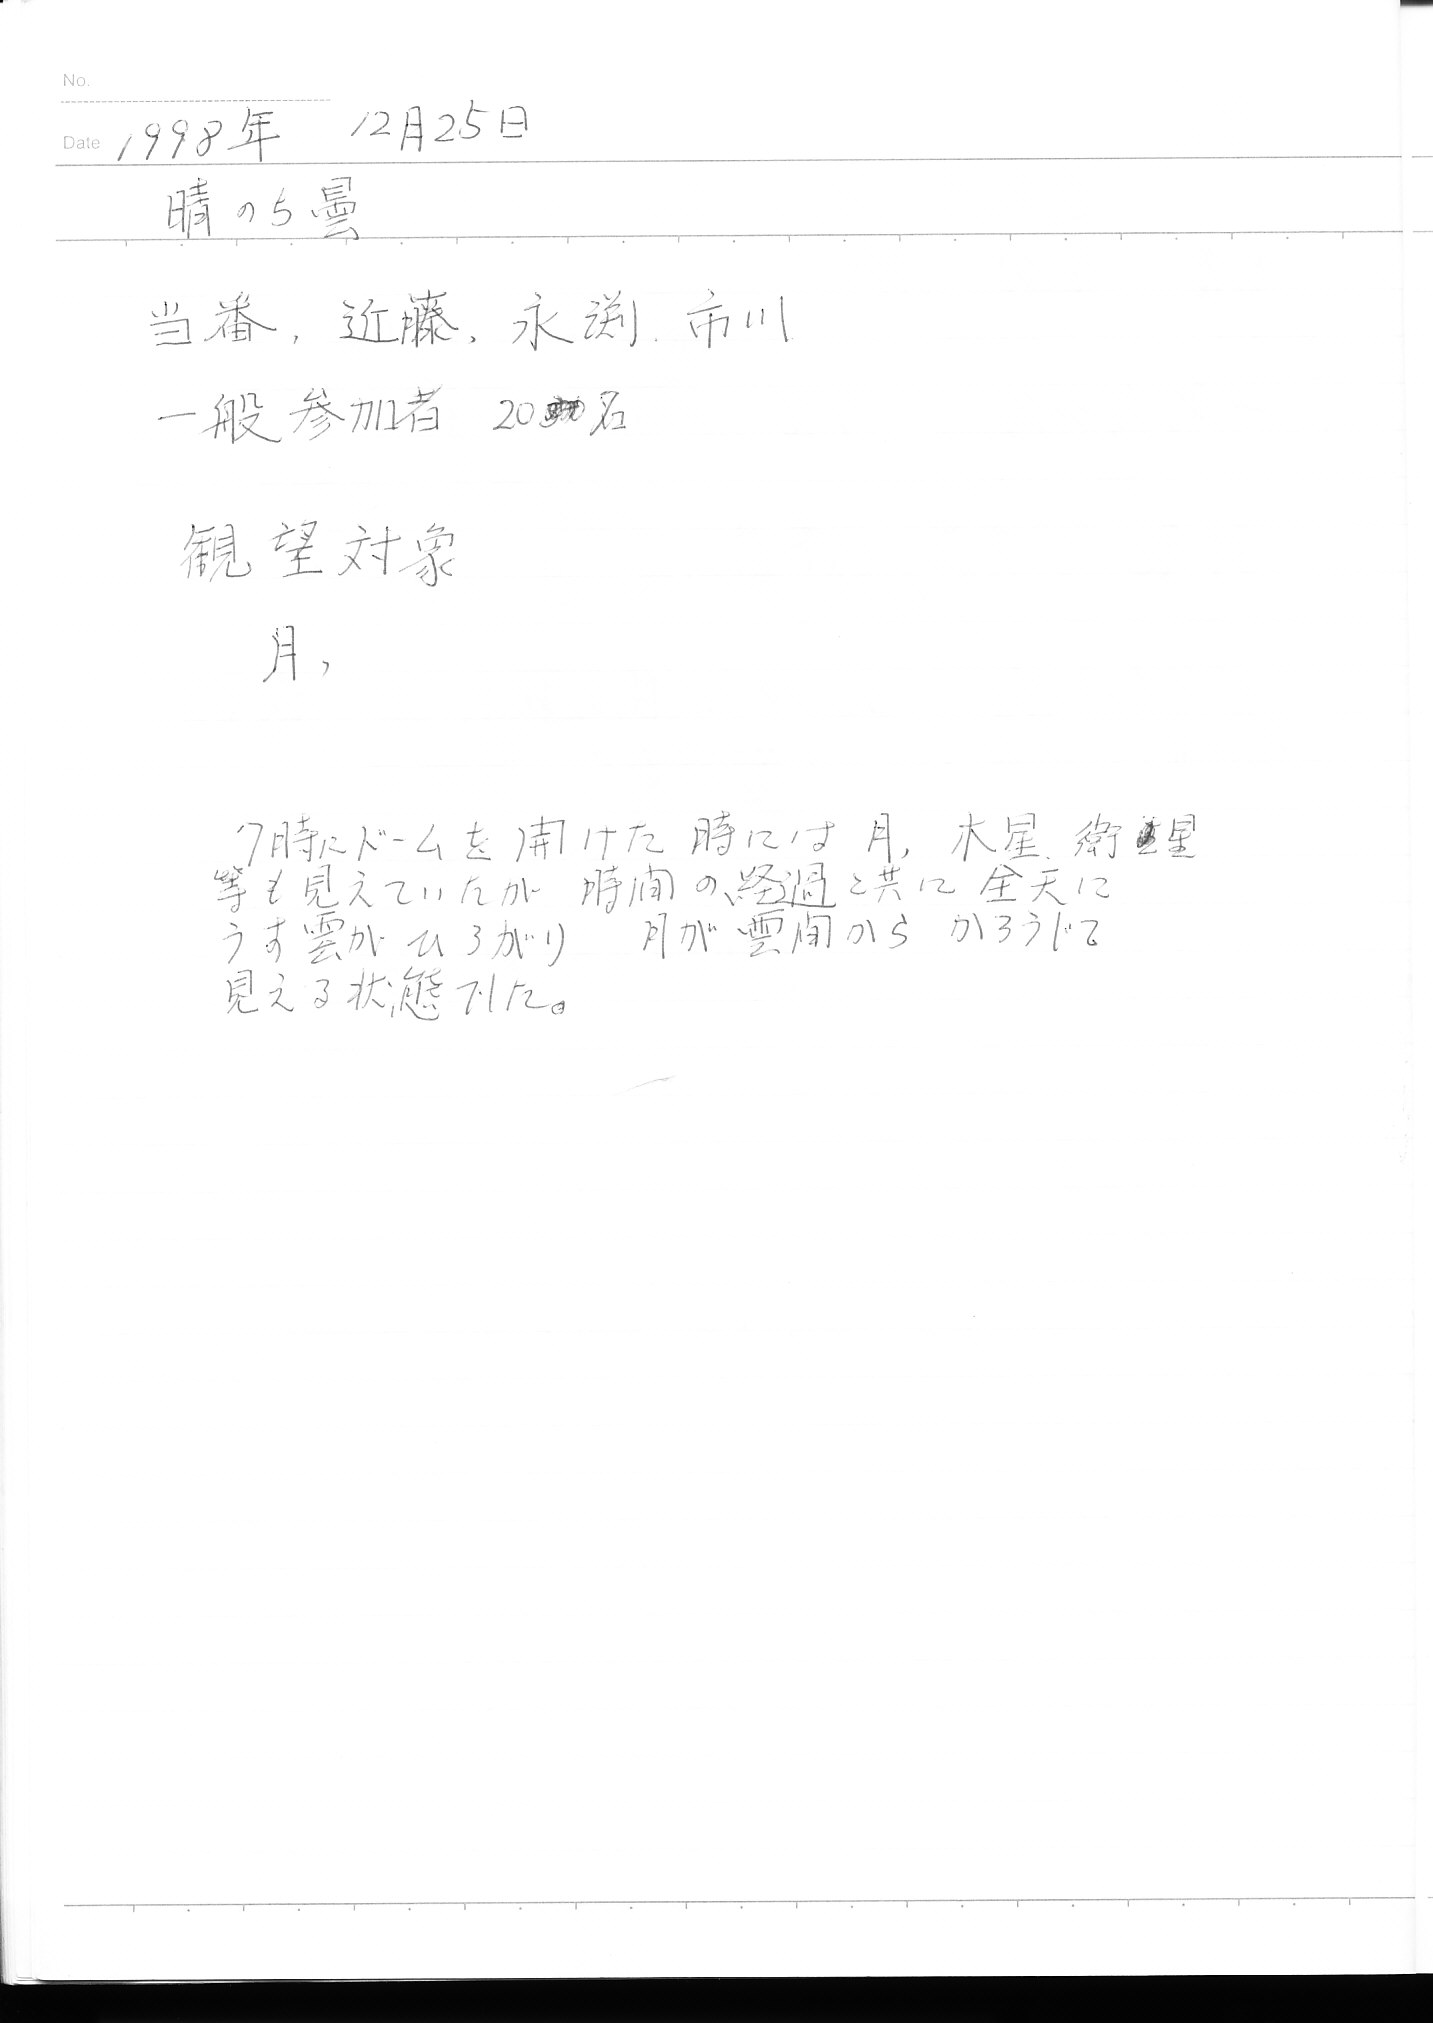 No.
Date 1998年 12月25日
晴のち曇
当番, 近藤, 永渕, 市川
一般参加者 20名
観望対象
月,
7時にドームを開けた時には月, 木星, 衛星
等も見えていたが 時間の経過と共に 全天に
うす雲がひろがり 月が雲間から かろうじて
見える状態でした。